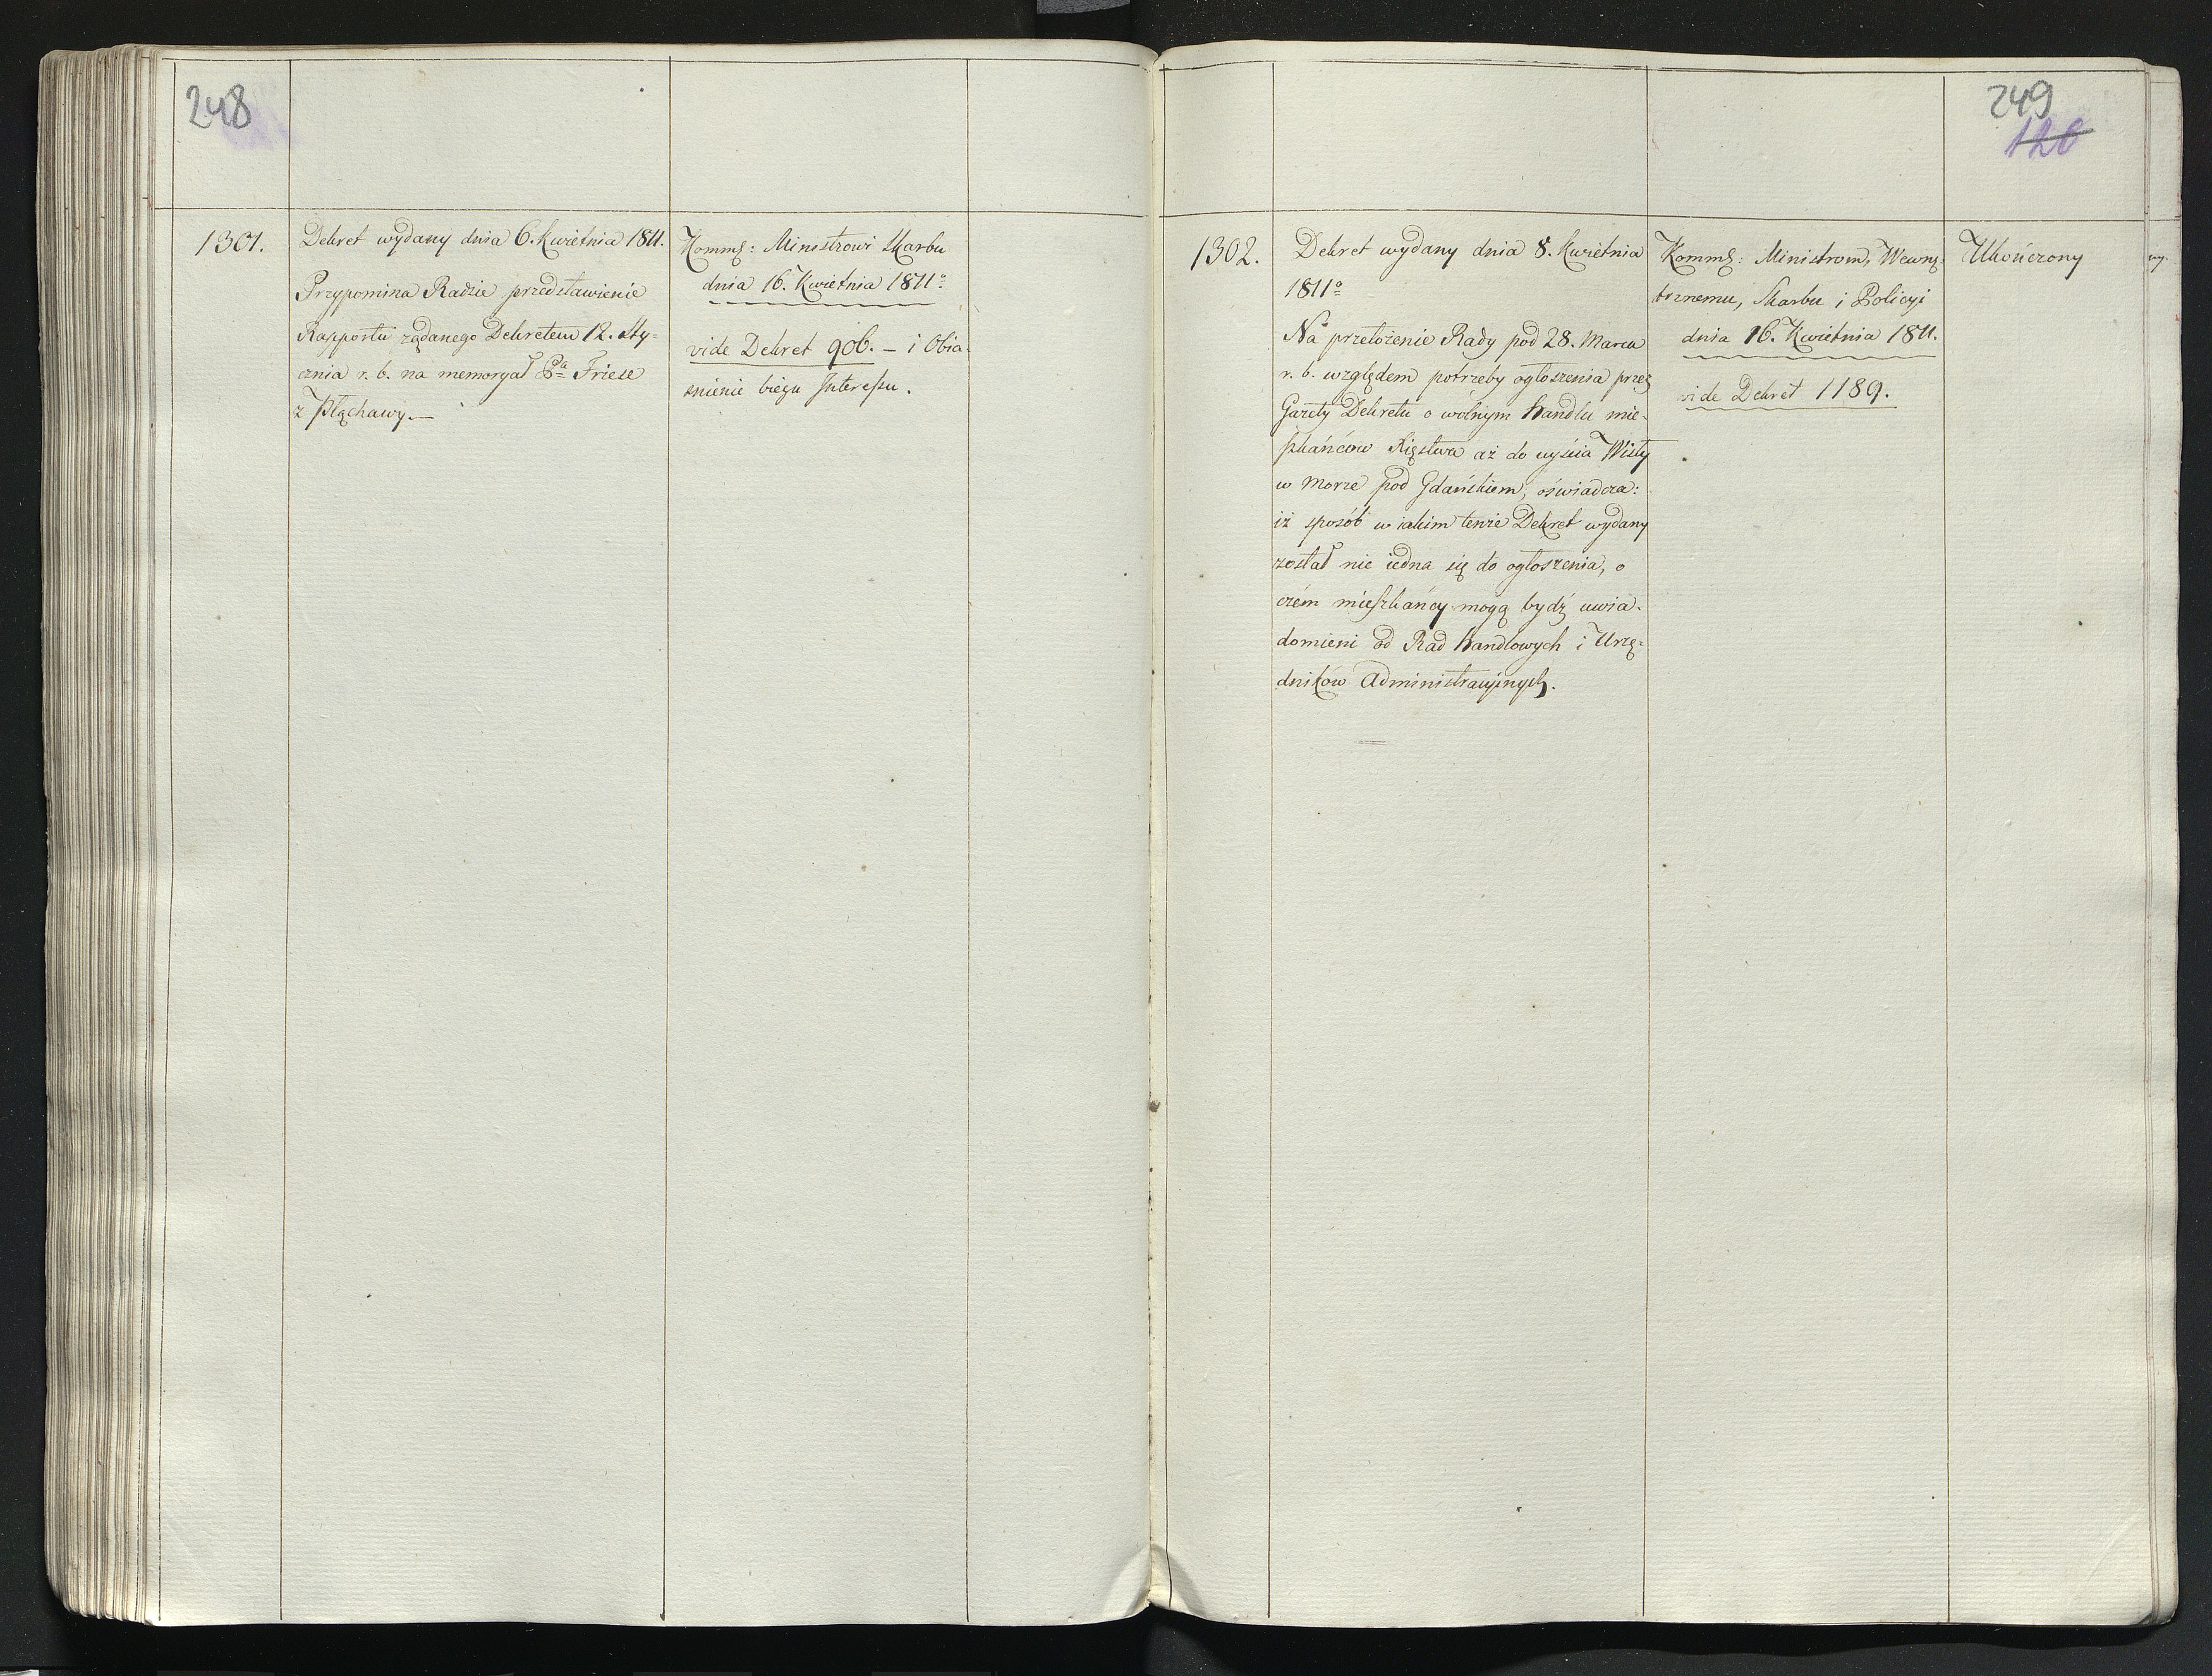 248
1301.
Dekret wydany dnia 6. Kwietnia 1811.
Przypomina Radzie przedstawienie
Rapportu żądanego Dekretem 12. Sty-
cznia r. b. na memoryał Pa Friese
z Płąchawy.—
Komm: Ministrowi Skarbu
dnia 16. Kwietnia 1811o
vide Dekret 906. — i Obia-
snienie biegu Interessu.
249
126
1302.
Dekret wydany dnia 8. Kwietnia
1811o
Na przełożenie Rady pod 28. Marca
r. b. względem potrzeby ogłoszenia przez
Gazety Dekretu o wolnym handlu mie-
szkańców Xięstwa aż do uyścia Wisły
w morze pod Gdańskiem, oświadcza:
iż sposób w iakim tenże Dekret wydany
został nie iedna się do ogłoszenia, o
czém mieszkańcy mogą bydź uwia-
domieni od Rad handlowych i Urzę-
dników Administracyinych.
Komm: Ministrom, Wewnę-
trznemu, Skarbu i Policyi
dnia 16. Kwietnia 1811.
vide Dekret 1189.
Ukończony
ny.